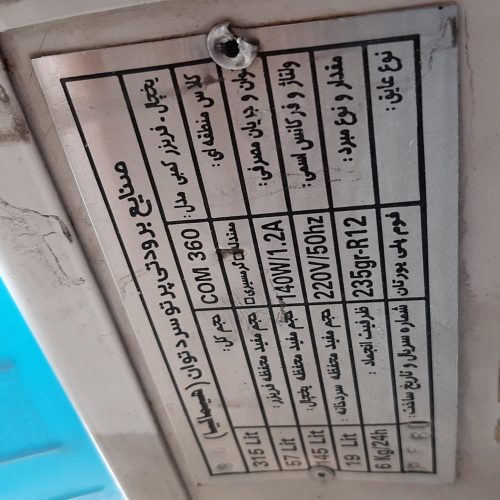 صنایع برودتی پرتو سرد توان (هیمالیا)
یخچال ، فریزر کمبی مدل: COM 360 حجم کل: 315 Lit
کلاس منطقه ای: معتدله گرمسیری حجم مفید محفظه فریزر: 57 Lit
توان و جریان مصرفی: 140W/1.2A حجم مفید محفظه یخچال: 145 Lit
ولتاژ و فرکانس اسمی: 220V/50hz حجم مفید محفظه سردخانه: 19 Lit
مقدار و نوع مبرد: 235gr-R12 ظرفیت انجماد: 6 Kg/24h
نوع عایق: فوم پلی یورتان شماره سریال و تاریخ ساخت: